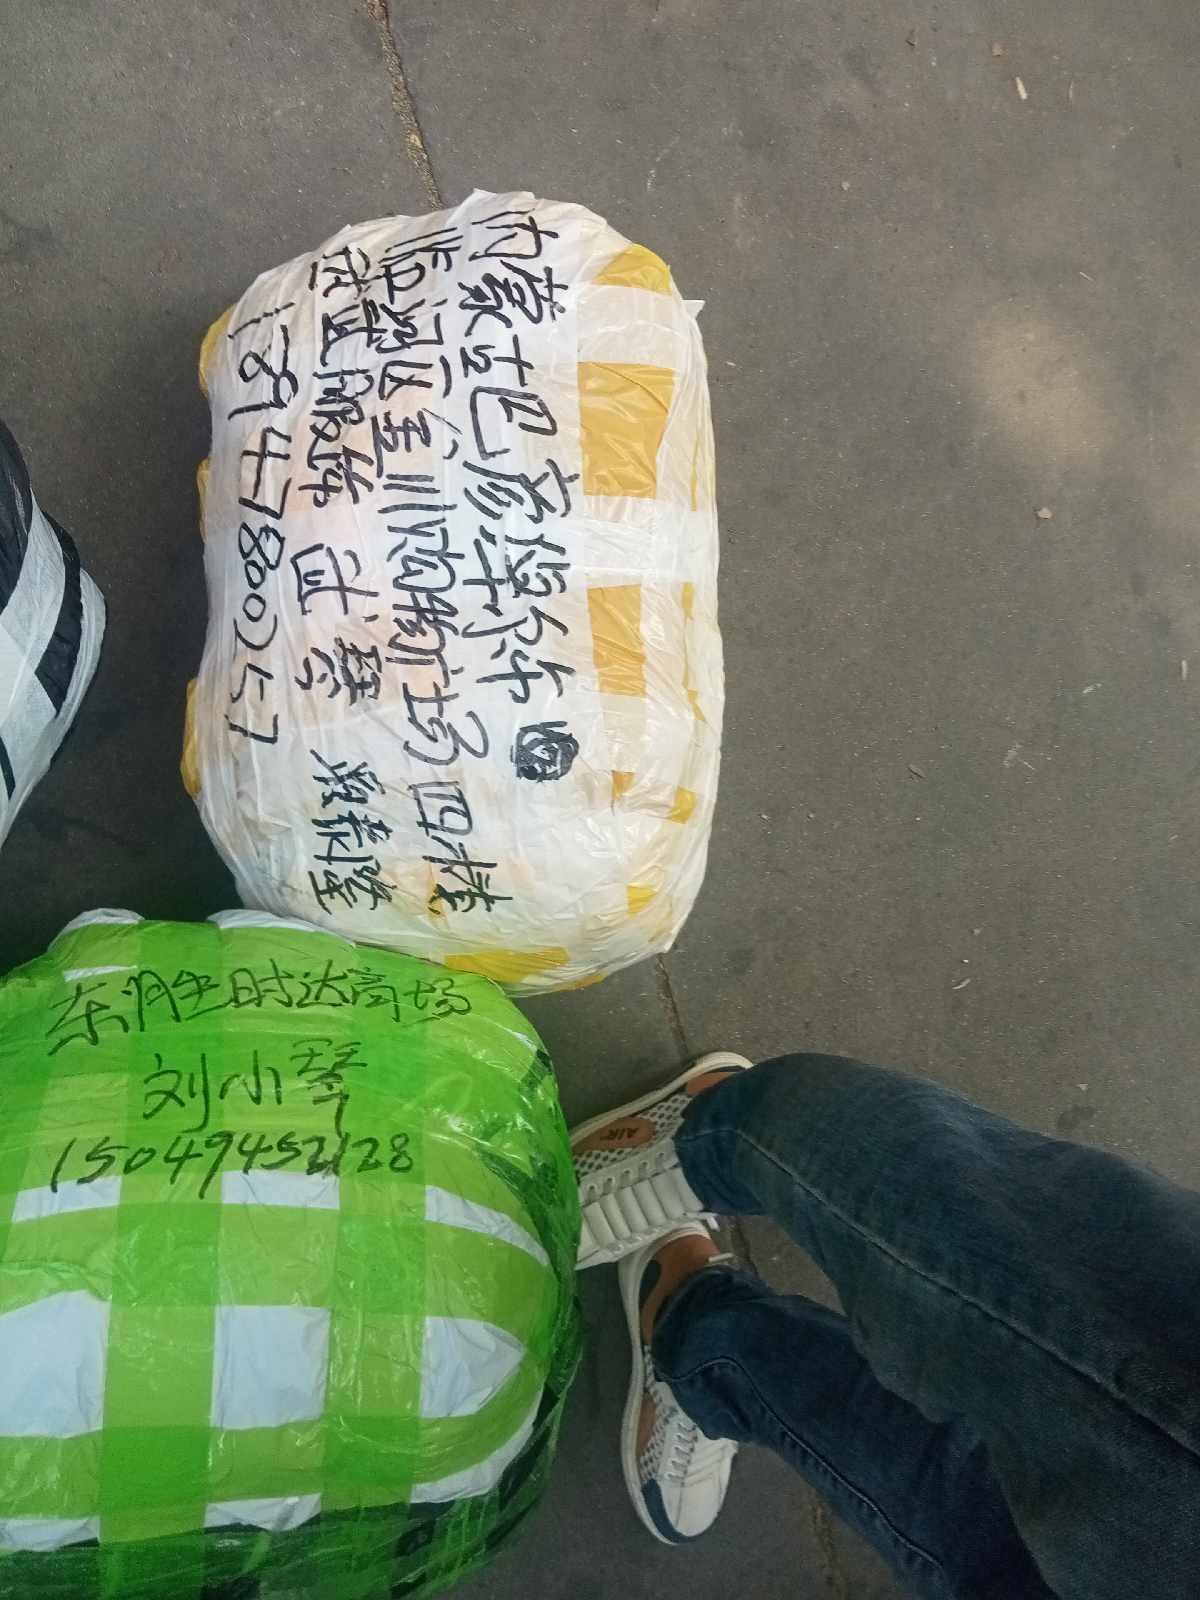 内蒙古巴彦淖尔
临河区金川购物广场四楼
时达服饰
17894780257
东胜时达商场
刘小琴
15049452128
AIR